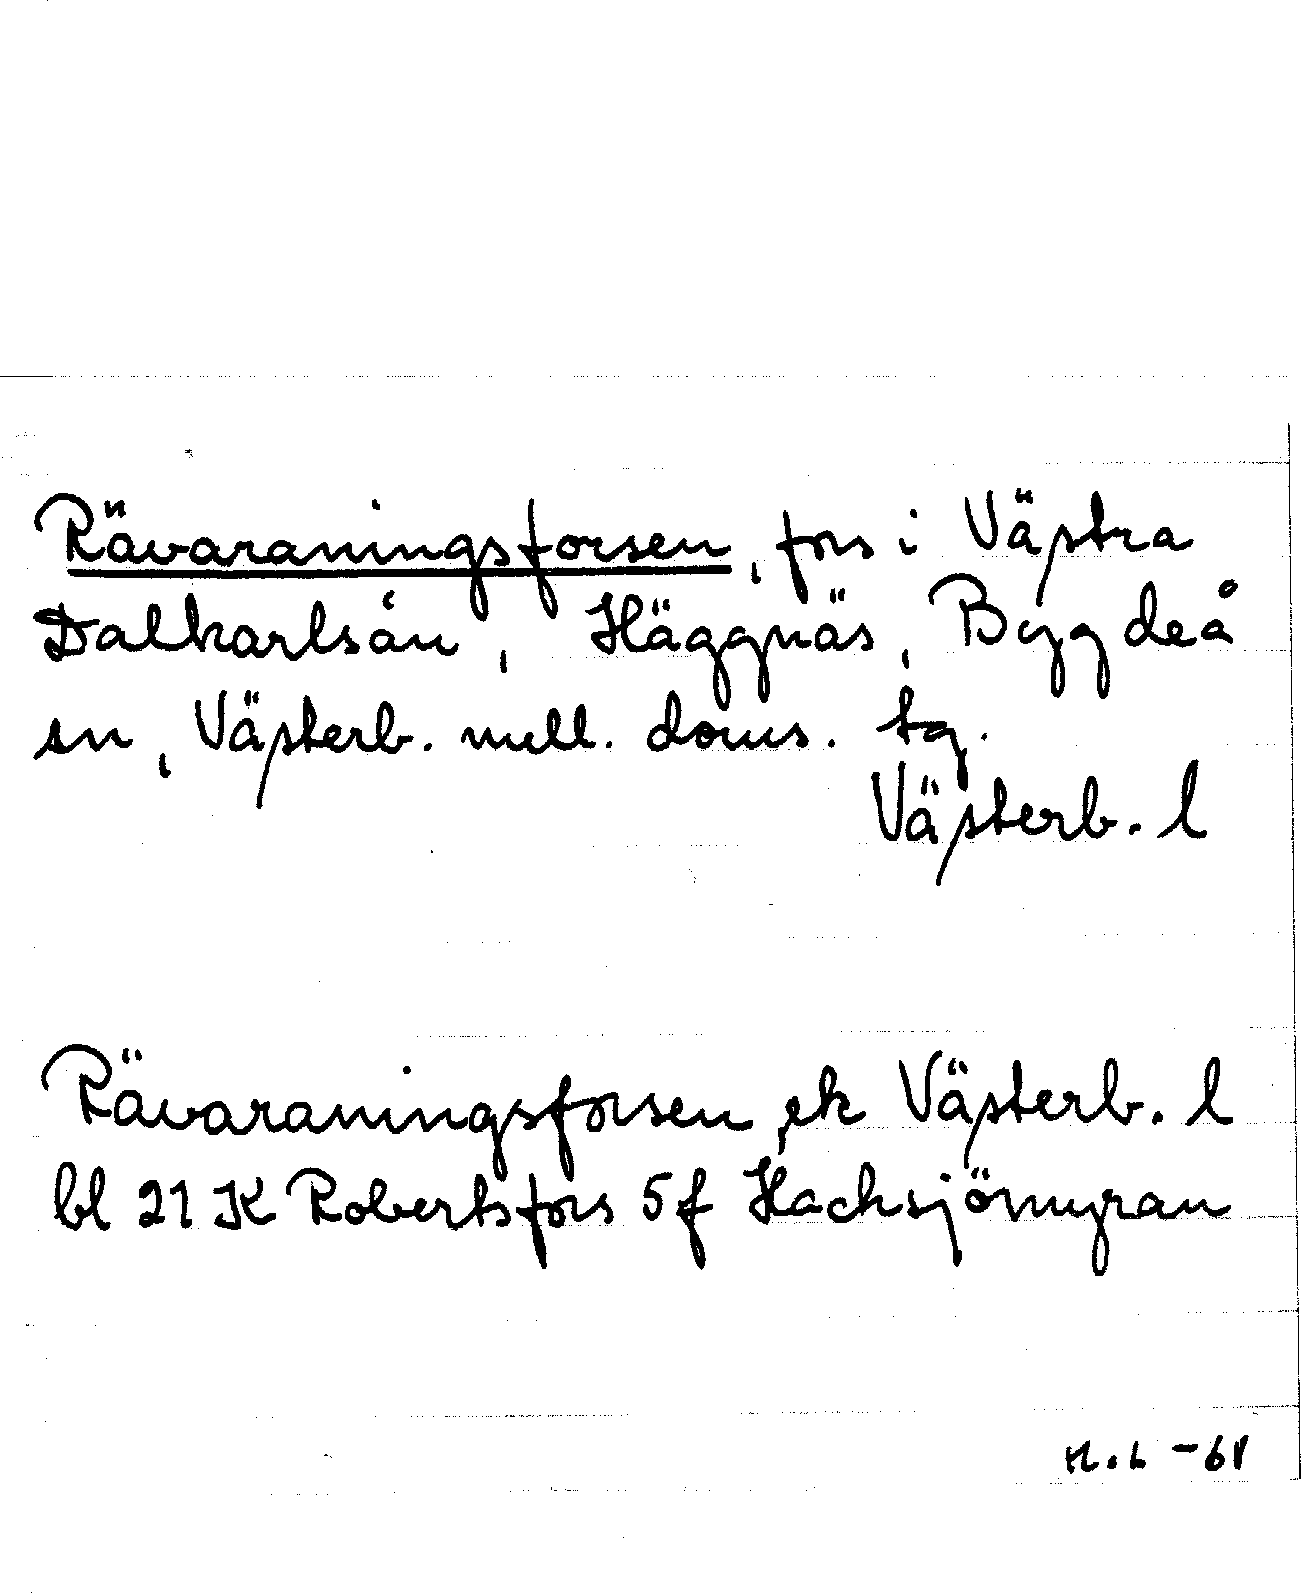 Rävaraningsforsen, fors i Västra
Dalkarlsån, Häggnäs, Bygdeå
sn, Västerb. mell. doms. tg.
Västerb. l
Rävaraningsforsen, ek Västerb. l
bl 21 K Robertsfors 5 f Hacksjömyran
H.L -68